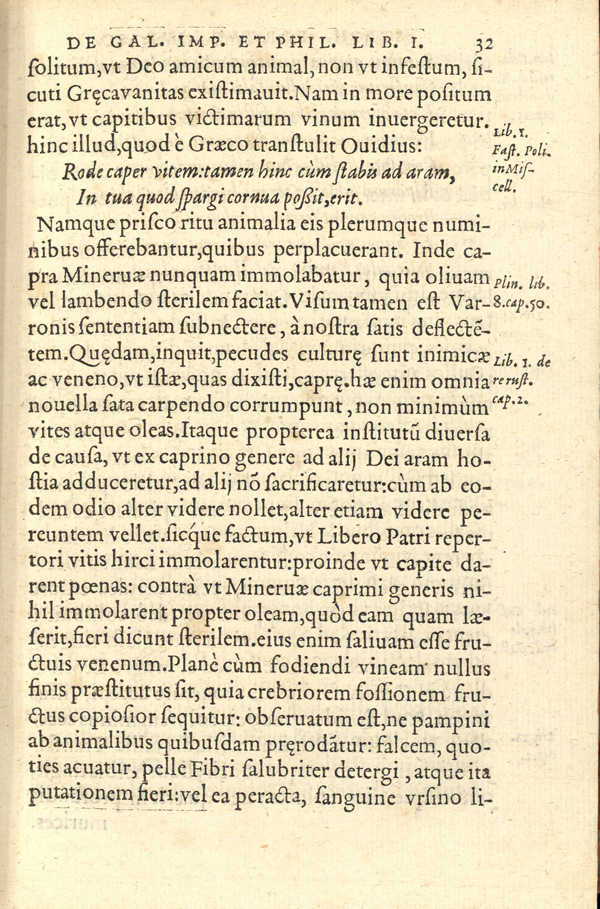 DE GAL. IMP. ET PHIL. LIB. I. 32
ſolitum,vt Deo amicum animal, non vt infeſtum, ſi-
cuti Gręcavanitas exiſtimauit.Nam in more poſitum
erat,vt capitibus victimarum vinum inuergeretur.
hinc illud,quod è Græco tranſtulit Ouidius:
Lib.1.
Faſt. Poli.
in Miſ-
cell.
Rode caper vitem:tamen hinc cùm ſtabis ad aram,
In tua quod ſpargi cornua poßit,erit.
Namque priſco ritu animalia eis plerumque numi-
nibus offerebantur,quibus perplacuerant. Inde ca-
pra Mineruæ nunquam immolabatur, quia oliuam
vel lambendo ſterilem faciat.Viſum tamen eſt Var-
Plin. lib.
8.cap.50.
ronis ſententiam ſubnectere, à noſtra ſatis deflectē-
tem.Quędam,inquit,pecudes culturę ſunt inimicæ
ac veneno,vt iſtæ,quas dixiſti,caprę.hæ enim omnia
nouella ſata carpendo corrumpunt, non minimùm
Lib. 1. de
re ruſt.
cap.2.
vites atque oleas.Itaque propterea inſtitutū diuerſa
de cauſa, vt ex caprino genere ad alij Dei aram ho-
ſtia adduceretur,ad alij nō ſacrificaretur:cùm ab eo-
dem odio alter videre nollet,alter etiam videre pe-
reuntem vellet.ſicq́ue factum,vt Libero Patri reper-
tori vitis hirci immolarentur:proinde vt capite da-
rent pœnas: contrà vt Mineruæ caprimi generis ni-
hil immolarent propter oleam,quòd eam quam læ-
ſerit,fieri dicunt ſterilem.eius enim ſaliuam eſſe fru-
ctuis venenum.Planè cùm fodiendi vineam nullus
finis præſtitutus ſit, quia crebriorem foſſionem fru-
ctus copioſior ſequitur: obſeruatum eſt,ne pampini
ab animalibus quibuſdam pręrodātur: falcem, quo-
ties acuatur, pelle Fibri ſalubriter detergi, atque ita
putationem fieri:vel ea peracta, ſanguine vrſino li-